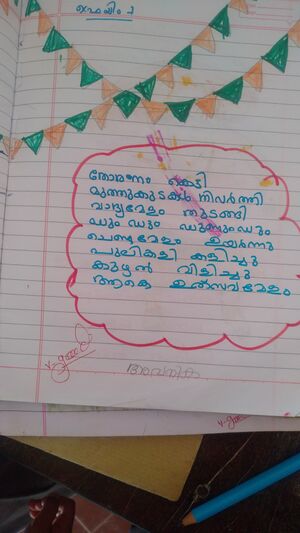 ഫ്രെയിം 2
തോരണം കെട്ടി
മുത്തുക്കുടകൾ നിവർത്തി
വാദ്യമേളം തുടങ്ങി
ഡും ഡും ഡുണ്ടും ഡും
ചെണ്ടമേളം ഉയർന്നു
പുലികളി കളിച്ചു
കുഴൽ വിളിച്ചു
ആകെ ഉത്സവമേളം
v-good
v-goo